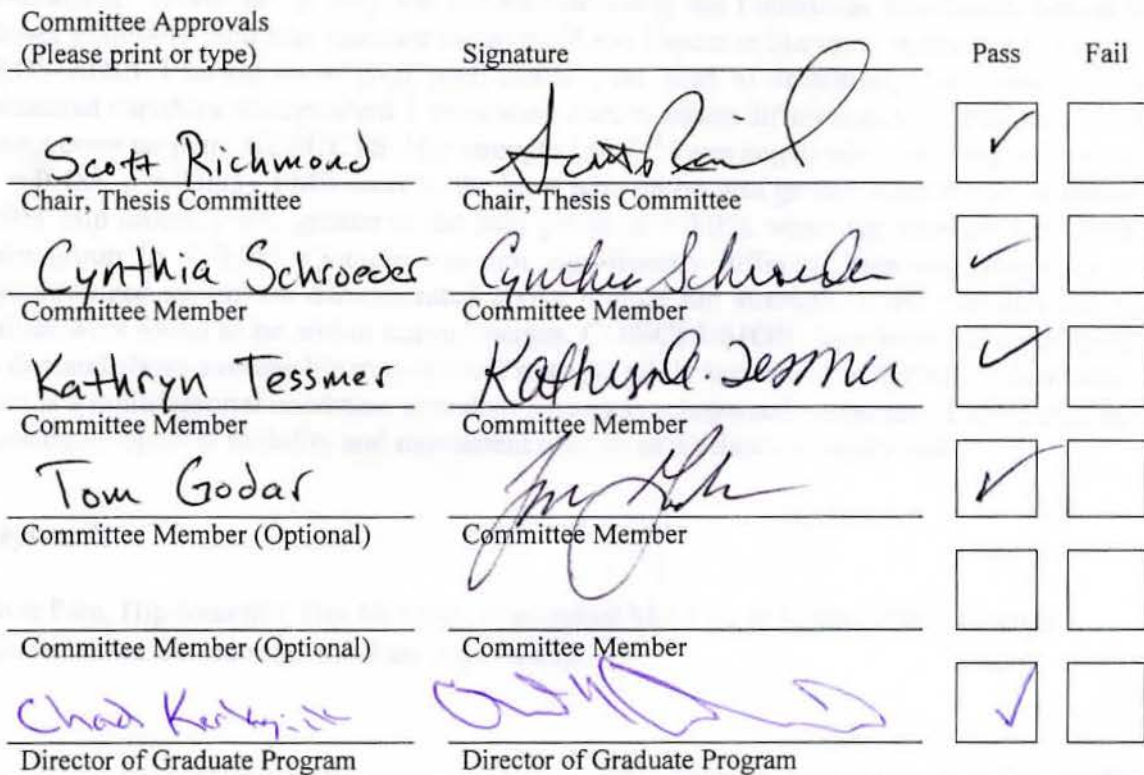 Committee Approvals
(Please print or type) Signature Pass Fail
Scott Richmond
Chair, Thesis Committee Chair, Thesis Committee
Cynthia Schroeder Cynthia Schroeder
Committee Member Committee Member
Kathryn Tessmer Kathryn Tessmer
Committee Member Committee Member
Tom Godar
Committee Member (Optional) Committee Member
Committee Member (Optional) Committee Member
Chad
Director of Graduate Program Director of Graduate Program